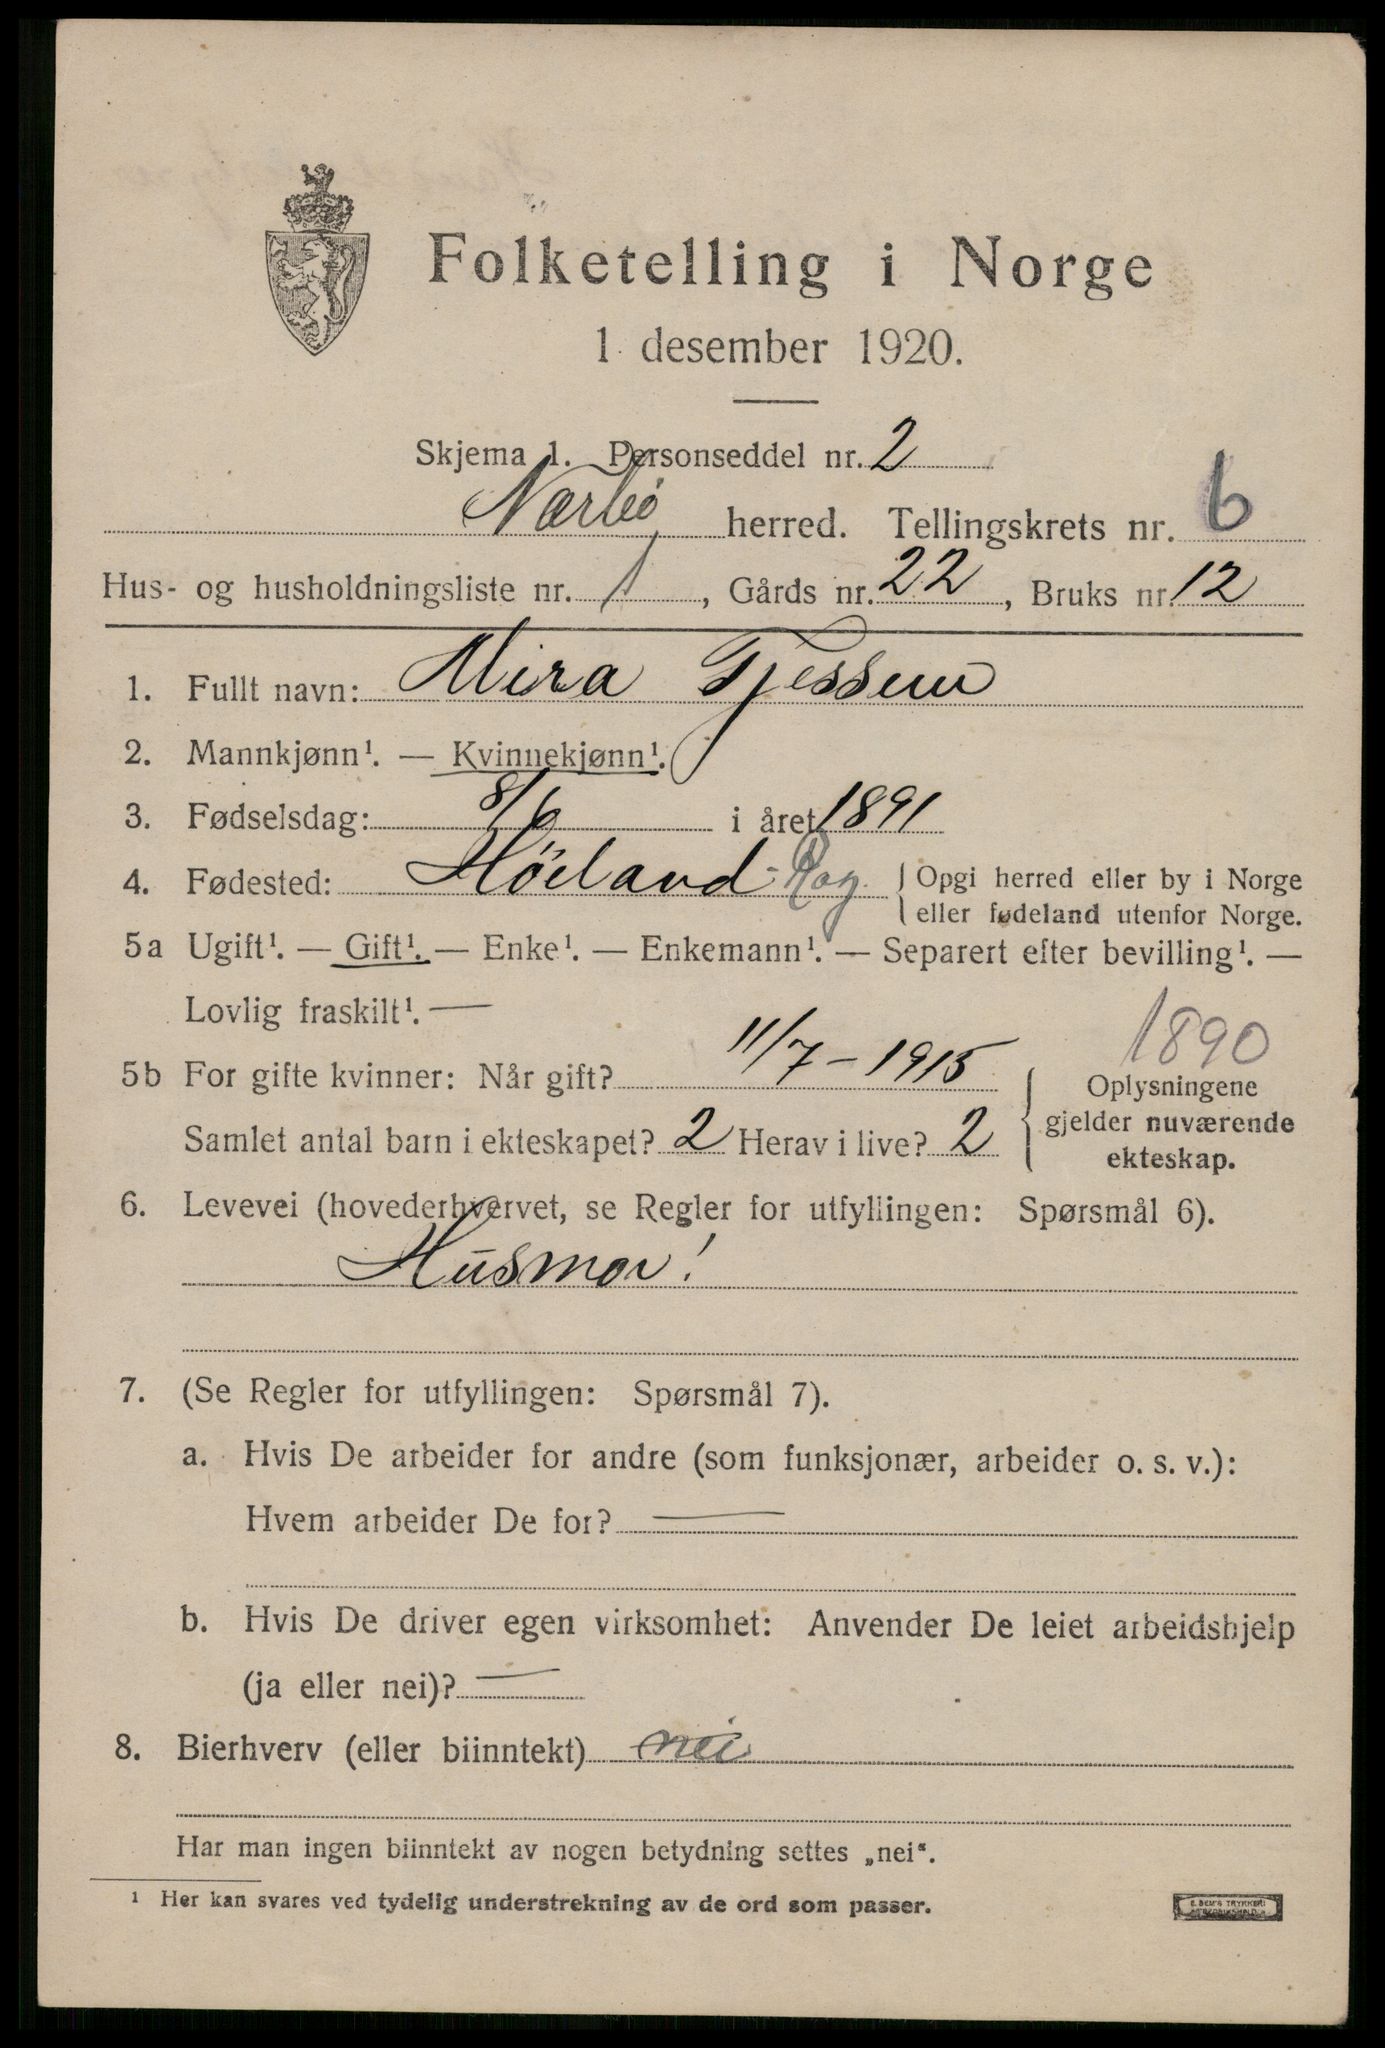 Folketelling i Norge
1. desember 1920.
Skjema 1. Personseddel nr. 2
Nærbø herred. Tellingskrets nr. 6
Hus- og husholdningsliste nr. 1, Gårds nr. 22, Bruks nr. 12
1. Fullt navn: Mira Tjessem
2. Mannkjønn¹. — Kvinnekjønn¹.
3. Fødselsdag: 8/6 i året 1891
4. Fødested: Höiland - Rog. { Opgi herred eller by i Norge
eller fødeland utenfor Norge.
5a Ugift¹. — Gift¹. — Enke¹. — Enkemann¹. — Separert efter bevilling¹. —
Lovlig fraskilt¹. —
1890
5b For gifte kvinner: Når gift? 11/7 – 1915 { Oplysningene
gjelder nuværende
ekteskap.
Samlet antal barn i ekteskapet? 2 Herav i live? 2
6. Levevei (hovederhvervet, se Regler for utfyllingen: Spørsmål 6).
Husmor!
7. (Se Regler for utfyllingen: Spørsmål 7).
a. Hvis De arbeider for andre (som funksjonær, arbeider o. s. v.):
Hvem arbeider De for? —
b. Hvis De driver egen virksomhet: Anvender De leiet arbeidshjelp
(ja eller nei)? —
8. Bierhverv (eller biinntekt) nei
Har man ingen biinntekt av nogen betydning settes „nei“.
¹ Her kan svares ved tydelig understrekning av de ord som passer.